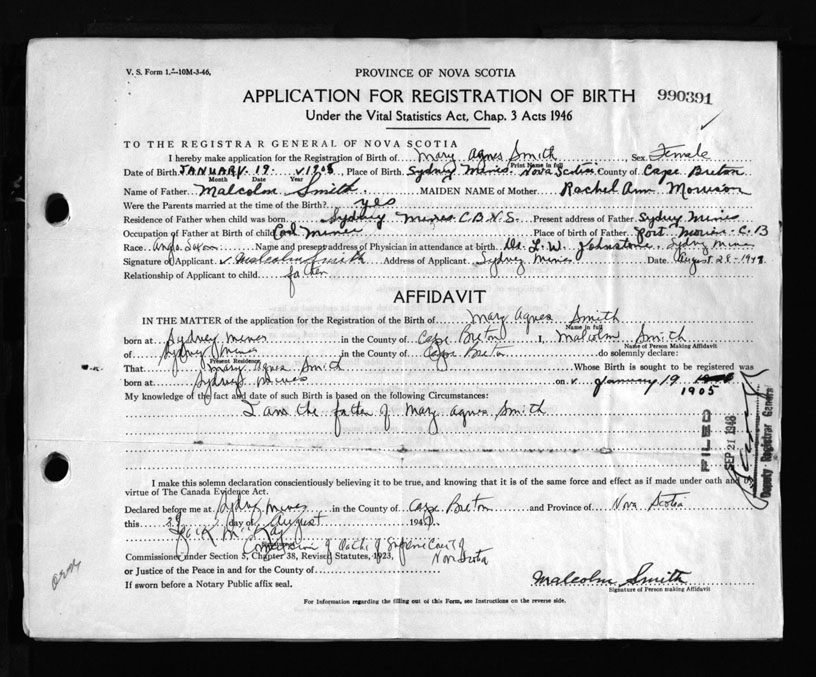 V. S. Form 1.—10M-3-46.
PROVINCE OF NOVA SCOTIA
APPLICATION FOR REGISTRATION OF BIRTH 990391
Under the Vital Statistics Act, Chap. 3 Acts 1946
TO THE REGISTRAR GENERAL OF NOVA SCOTIA
I hereby make application for the Registration of Birth of Mary Agnes Smith Sex Female
Print Name in full
Date of Birth JANUARY 19 1905, Place of Birth Sydney Mines Nova Scotia County of Cape Breton
Month Date Year
Name of Father Malcolm Smith MAIDEN NAME of Mother Rachel Ann Morrison
Were the Parents married at the time of the Birth? yes
Residence of Father when child was born Sydney Mines C.B.N.S. Present address of Father Sydney Mines
Occupation of Father at Birth of child Coal Miner Place of birth of Father Port Morien C.B
Race Anglo Saxon Name and present address of Physician in attendance at birth Dr. L. W. Johnstone, Sydney Mines
Signature of Applicant Malcolm Smith Address of Applicant Sydney Mines Date August 28-1948
Relationship of Applicant to child father
AFFIDAVIT
IN THE MATTER of the application for the Registration of Birth of Mary Agnes Smith
Name in full
born at Sydney Mines in the County of Cape Breton I, Malcolm Smith
Name of Person Making Affidavit
of Sydney Mines in the County of Cape Breton do solemnly declare:
Present Residence
That Mary Agnes Smith Whose Birth is sought to be registered was
born at Sydney Mines on January 19
1905
My knowledge of the fact and date of such Birth is based on the following Circumstances:
I am the father of Mary Agnes Smith
FILED
SEP 21 1948
Deputy Registrar General
I make this solemn declaration conscientiously believing it to be true, and knowing that it is of the same force and effect as if made under oath and by
virtue of The Canada Evidence Act.
Declared before me at Sydney Mines in the County of Cape Breton and Province of Nova Scotia
this day of August 194
Commissioner under Section 5, Chapter 38, Revised Statutes, 1923, Nova Scotia
or Justice of the Peace in and for County of
If sworn before a Notary Public affix seal.
Malcolm Smith
Signature of Person making Affidavit
For Information regarding the filling out of this Form, see Instructions on the reverse side.